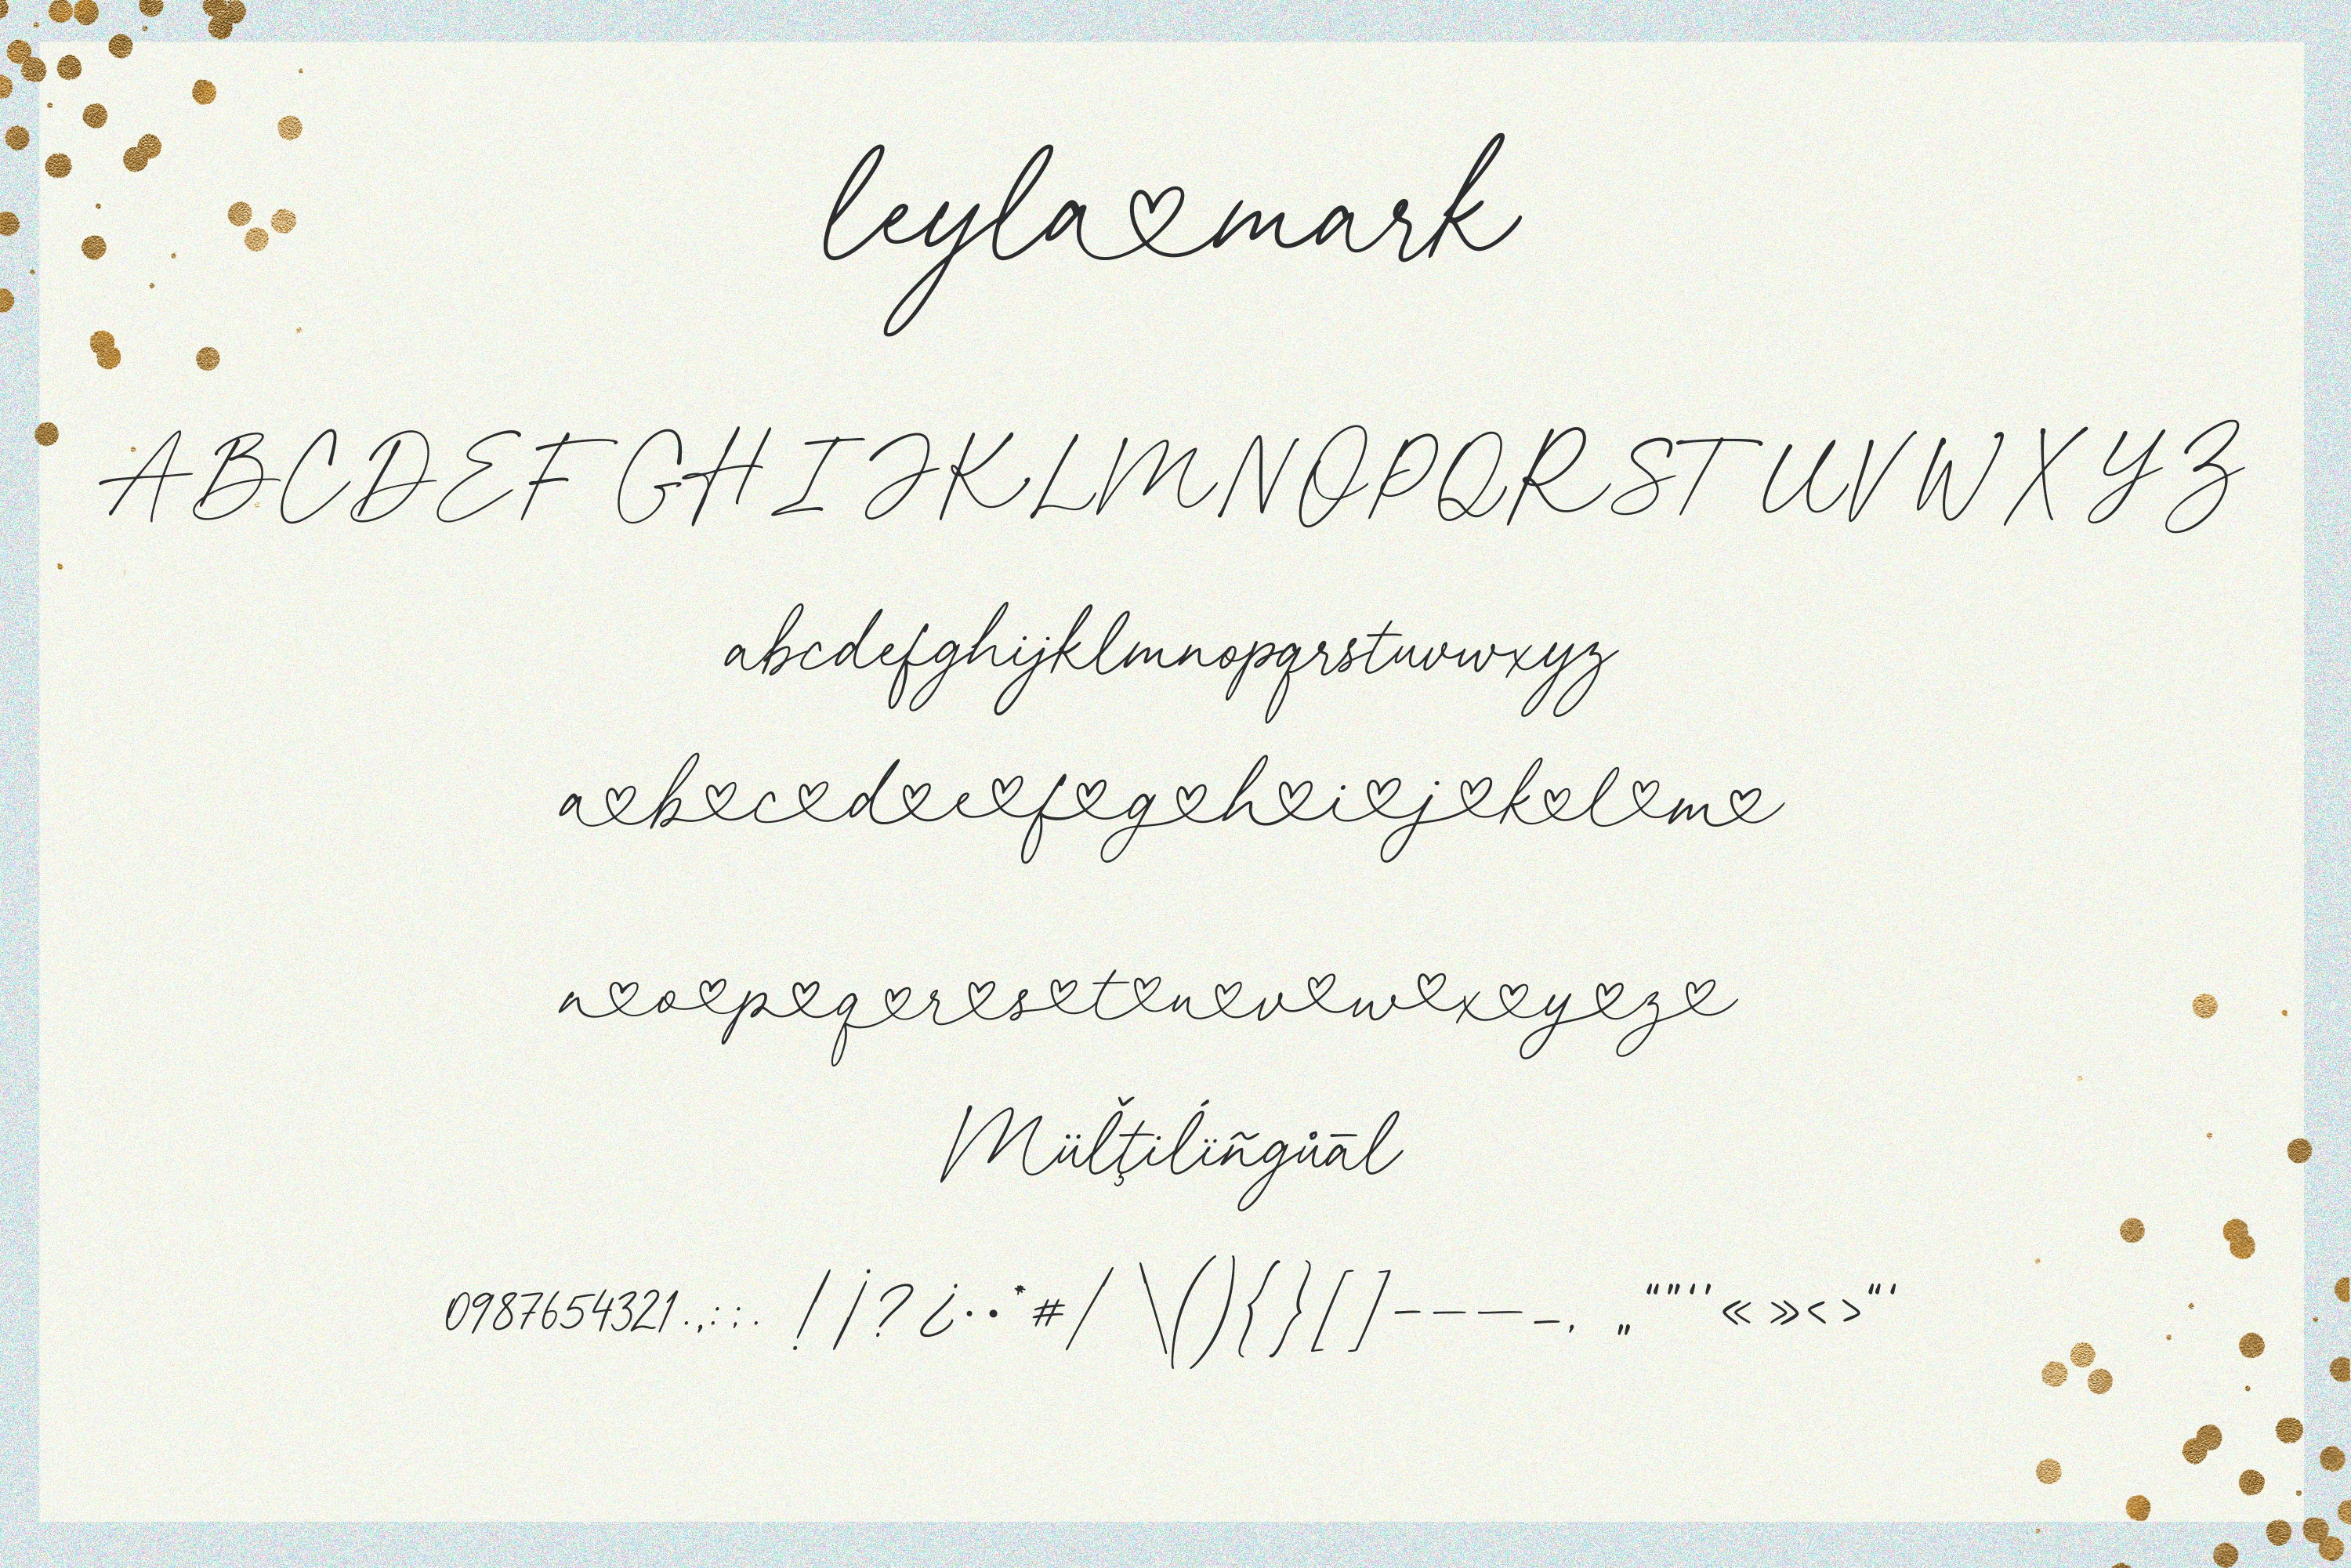 leyla♡mark
ABCDEFGHIJKLMNOPQRSTUVWXYZ
abcdefghijklmnopqrstuvwxyz
a♡b♡c♡d♡e♡f♡g♡h♡i♡j♡k♡l♡m♡
n♡o♡p♡q♡r♡s♡t♡u♡v♡w♡x♡y♡z♡
Müľţiĺïñgůāl
0987654321.,:;. !¡?¿·•*#/ \(){}[]-–—_‚ „“”‘’«»‹›"'